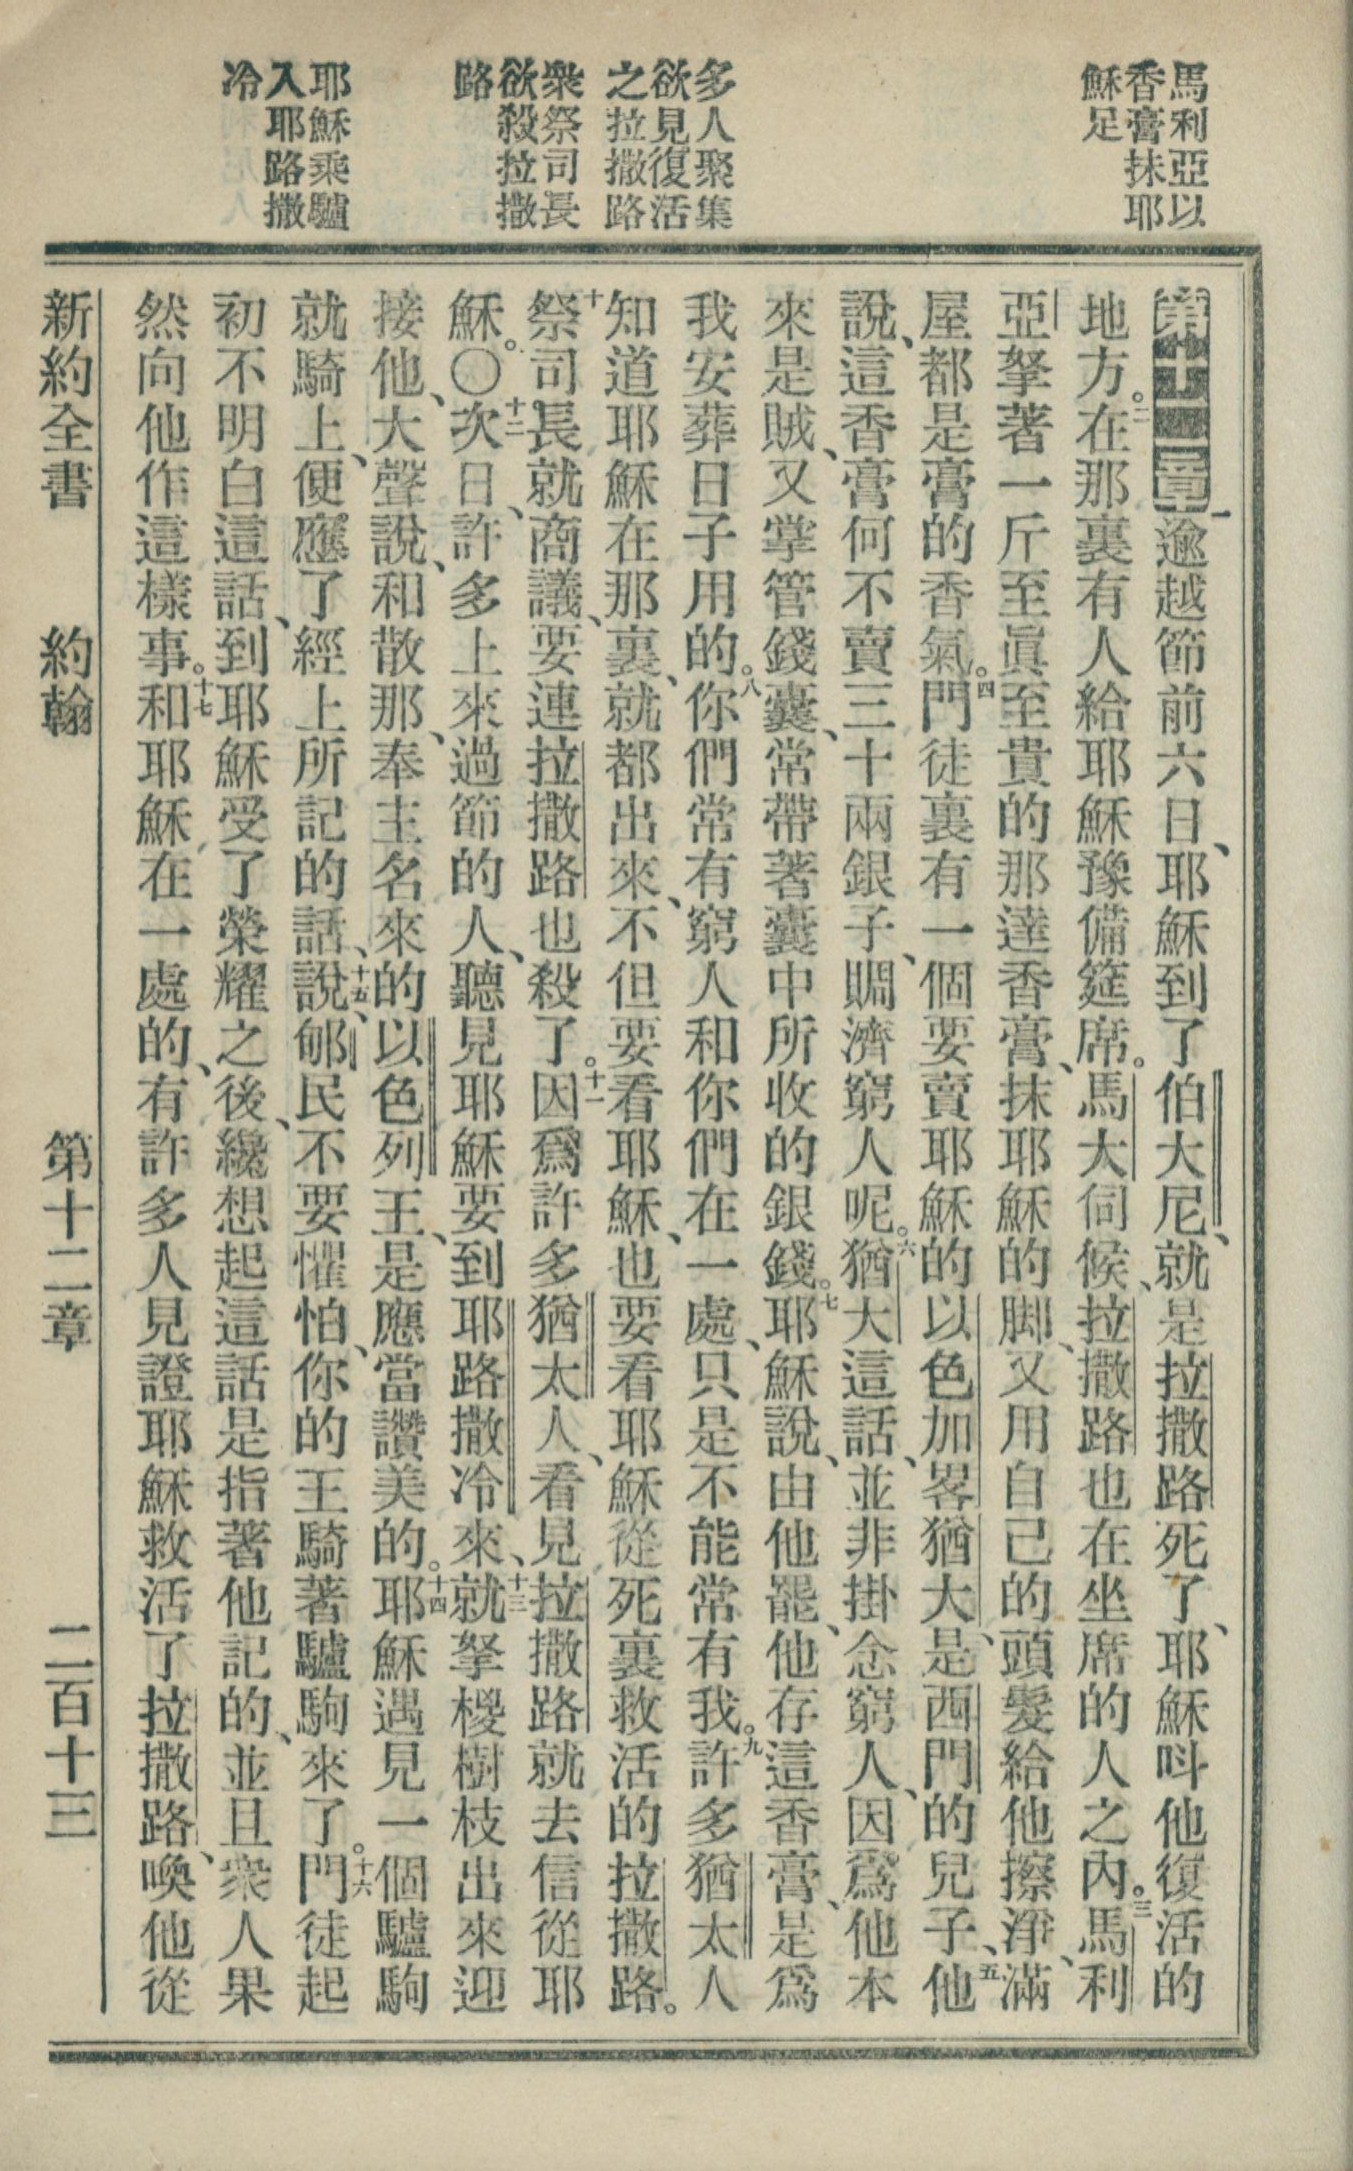 馬利亞以
香膏抹耶
穌足
多人聚集
欲見復活
之拉撒路
衆祭司長
欲殺拉撒
路
耶穌乘驢
入耶路撒
冷
第十二章一逾越節前六日、耶穌到了伯大尼、就是拉撒路死了、耶穌呌他復活的
地方。二在那裏有人給耶穌豫備筵席。馬大伺候、拉撒路也在坐席的人之內。三馬利
亞拏著一斤至眞至貴的那達香膏、抹耶穌的脚、又用自己的頭髮給他擦淨、滿
屋都是膏的香氣。四門徒裏有一個要賣耶穌的以色加畧猶大、是西門的兒子、五他
說、這香膏何不賣三十兩銀子、賙濟窮人呢。六猶大這話、並非掛念窮人、因爲他本
來是賊、又掌管錢囊、常帶著囊中所收的銀錢。七耶穌說、由他罷、他存這香膏、是爲
我安葬日子用的。八你們常有窮人和你們在一處、只是不能常有我。九許多猶太人
知道耶穌在那裏、就都出來、不但要看耶穌、也要看耶穌從死裏救活的拉撒路。
十祭司長就商議、要連拉撒路也殺了。十一因爲許多猶太人、看見拉撒路就去信從耶
穌。〇十二次日、許多上來過節的人、聽見耶穌要到耶路撒冷來、十三就拏椶樹枝出來迎
接他、大聲說、和散那、奉主名來的以色列王、是應當讚美的。十四耶穌遇見一個驢駒
就騎上、便應了經上所記的話、十五說、郇民不要懼怕、你的王騎著驢駒來了。十六門徒起
初不明白這話、到耶穌受了榮耀之後、纔想起這話是指著他記的、並且衆人果
然向他作這樣事。十七和耶穌在一處的、有許多人見證耶穌救活了拉撒路、喚他從
新約全書 約翰 第十二章 二百十三